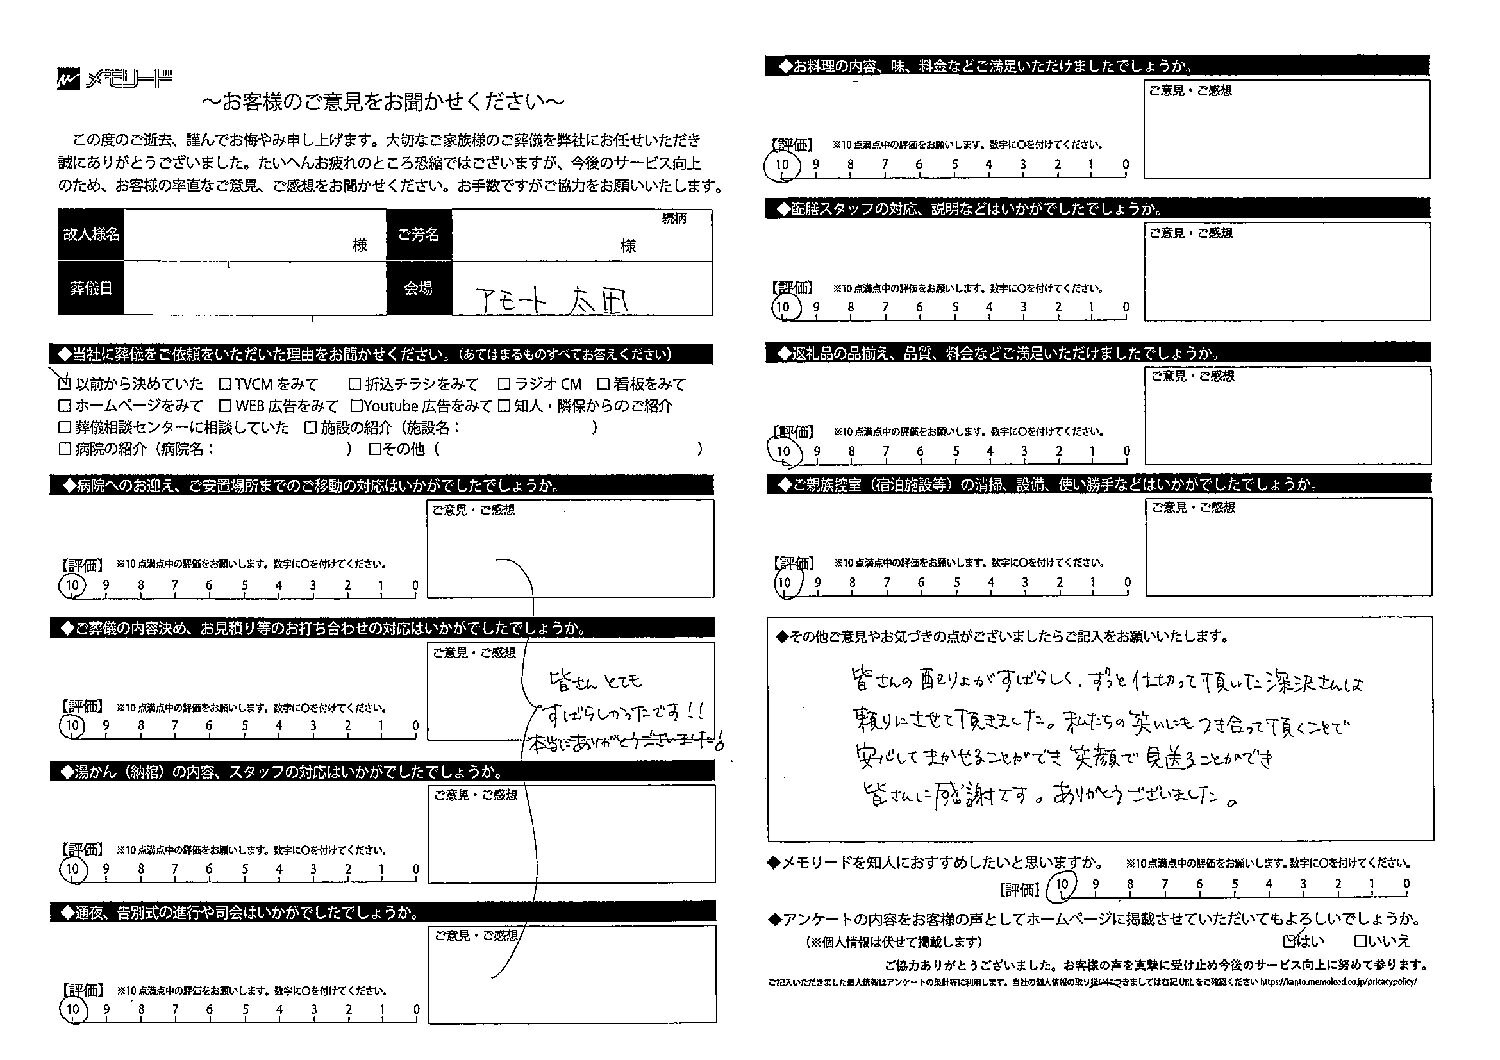 メモリード
～お客様のご意見をお聞かせください～
この度のご逝去、謹んでお悔やみ申し上げます。大切なご家族様のご葬儀を弊社にお任せいただき
誠にありがとうございました。たいへんお疲れのところ恐縮ではございますが、今後のサービス向上
のため、お客様の率直なご意見、ご感想をお聞かせください。お手数ですがご協力をお願いいたします。
故人様名 様 ご芳名 続柄 様
葬儀日 会場 アモート 太田
◆当社に葬儀をご依頼をいただいた理由をお聞かせください。（あてはまるものすべてお答えください）
☑以前から決めていた □TVCMをみて □折込チラシをみて □ラジオCM □看板をみて
□ホームページをみて □WEB広告をみて □Youtube広告をみて □知人・隣保からのご紹介
□葬儀相談センターに相談していた □施設の紹介（施設名： ）
□病院の紹介（病院名： ） □その他（ ）
◆病院へのお迎え、ご安置場所までのご移動の対応はいかがでしたでしょうか。
ご意見・ご感想
【評価】 ※10点満点中の評価をお願いします。数字に○を付けてください。
10 9 8 7 6 5 4 3 2 1 0
◆ご葬儀の内容決め、お見積り等のお打ち合わせの対応はいかがでしたでしょうか。
ご意見・ご感想
皆さんとても
すばらしかったです！！
本当にありがとうございました！
【評価】 ※10点満点中の評価をお願いします。数字に○を付けてください。
10 9 8 7 6 5 4 3 2 1 0
◆湯かん（納棺）の内容、スタッフの対応はいかがでしたでしょうか。
ご意見・ご感想
【評価】 ※10点満点中の評価をお願いします。数字に○を付けてください。
10 9 8 7 6 5 4 3 2 1 0
◆通夜、告別式の進行や司会はいかがでしたでしょうか。
ご意見・ご感想
【評価】 ※10点満点中の評価をお願いします。数字に○を付けてください。
10 9 8 7 6 5 4 3 2 1 0
◆お料理の内容、味、料金などご満足いただけましたでしょうか。
ご意見・ご感想
【評価】 ※10点満点中の評価をお願いします。数字に○を付けてください。
10 9 8 7 6 5 4 3 2 1 0
◆配膳スタッフの対応、説明などはいかがでしたでしょうか。
ご意見・ご感想
【評価】 ※10点満点中の評価をお願いします。数字に○を付けてください。
10 9 8 7 6 5 4 3 2 1 0
◆返礼品の品揃え、品質、料金などご満足いただけましたでしょうか。
ご意見・ご感想
【評価】 ※10点満点中の評価をお願いします。数字に○を付けてください。
10 9 8 7 6 5 4 3 2 1 0
◆ご親族控室（宿泊施設等）の清掃、設備、使い勝手などはいかがでしたでしょうか。
ご意見・ご感想
【評価】 ※10点満点中の評価をお願いします。数字に○を付けてください。
10 9 8 7 6 5 4 3 2 1 0
◆その他ご意見やお気づきの点がございましたらご記入をお願いいたします。
皆さんの配りょがすばらしく、ずっと仕切って頂いた深沢さんは
頼りにさせて頂きました。私たちの笑いにもつき合って頂くことで
安心してまかせることができ笑顔で見送ることができ
皆さんに感謝です。ありがとうございました。
◆メモリードを知人におすすめしたいと思いますか。 ※10点満点中の評価をお願いします。数字に○を付けてください。
【評価】 10 9 8 7 6 5 4 3 2 1 0
◆アンケートの内容をお客様の声としてホームページに掲載させていただいてもよろしいでしょうか。
（※個人情報は伏せて掲載します） ☑はい □いいえ
ご協力ありがとうございました。お客様の声を真摯に受け止め今後のサービス向上に努めて参ります。
ご記入いただきました個人情報はアンケートの集計等に利用します。当社の個人情報の取り扱いにつきましては右記URLをご確認ください https://kanto.memolead.co.jp/privacypolicy/